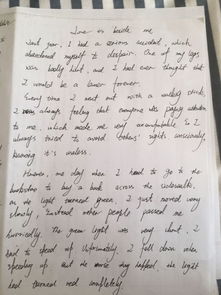 Love is beside me
Last year, I had a serious accident, which
abandoned myself to despair. One of my legs
was badly hurt, and I had ever thought that
I would be a lamer forever.
Every time I went out with a walking stick,
I was always feeling that everyone was paying attention
to me, which made me very uncomfortable. So I
always tried to avoid others' sights anxiously,
knowing it's useless.
However, one day when I had to go to the
bookstore to buy a book across the sidewalk,
as the light turned green, I just moved very
slowly, instead other people passed me
hurriedly. The green light was very short, I
had to speed up. Unfortunately, I fell down when
speeding up. And the worse thing happened, the light
had turned red completely.